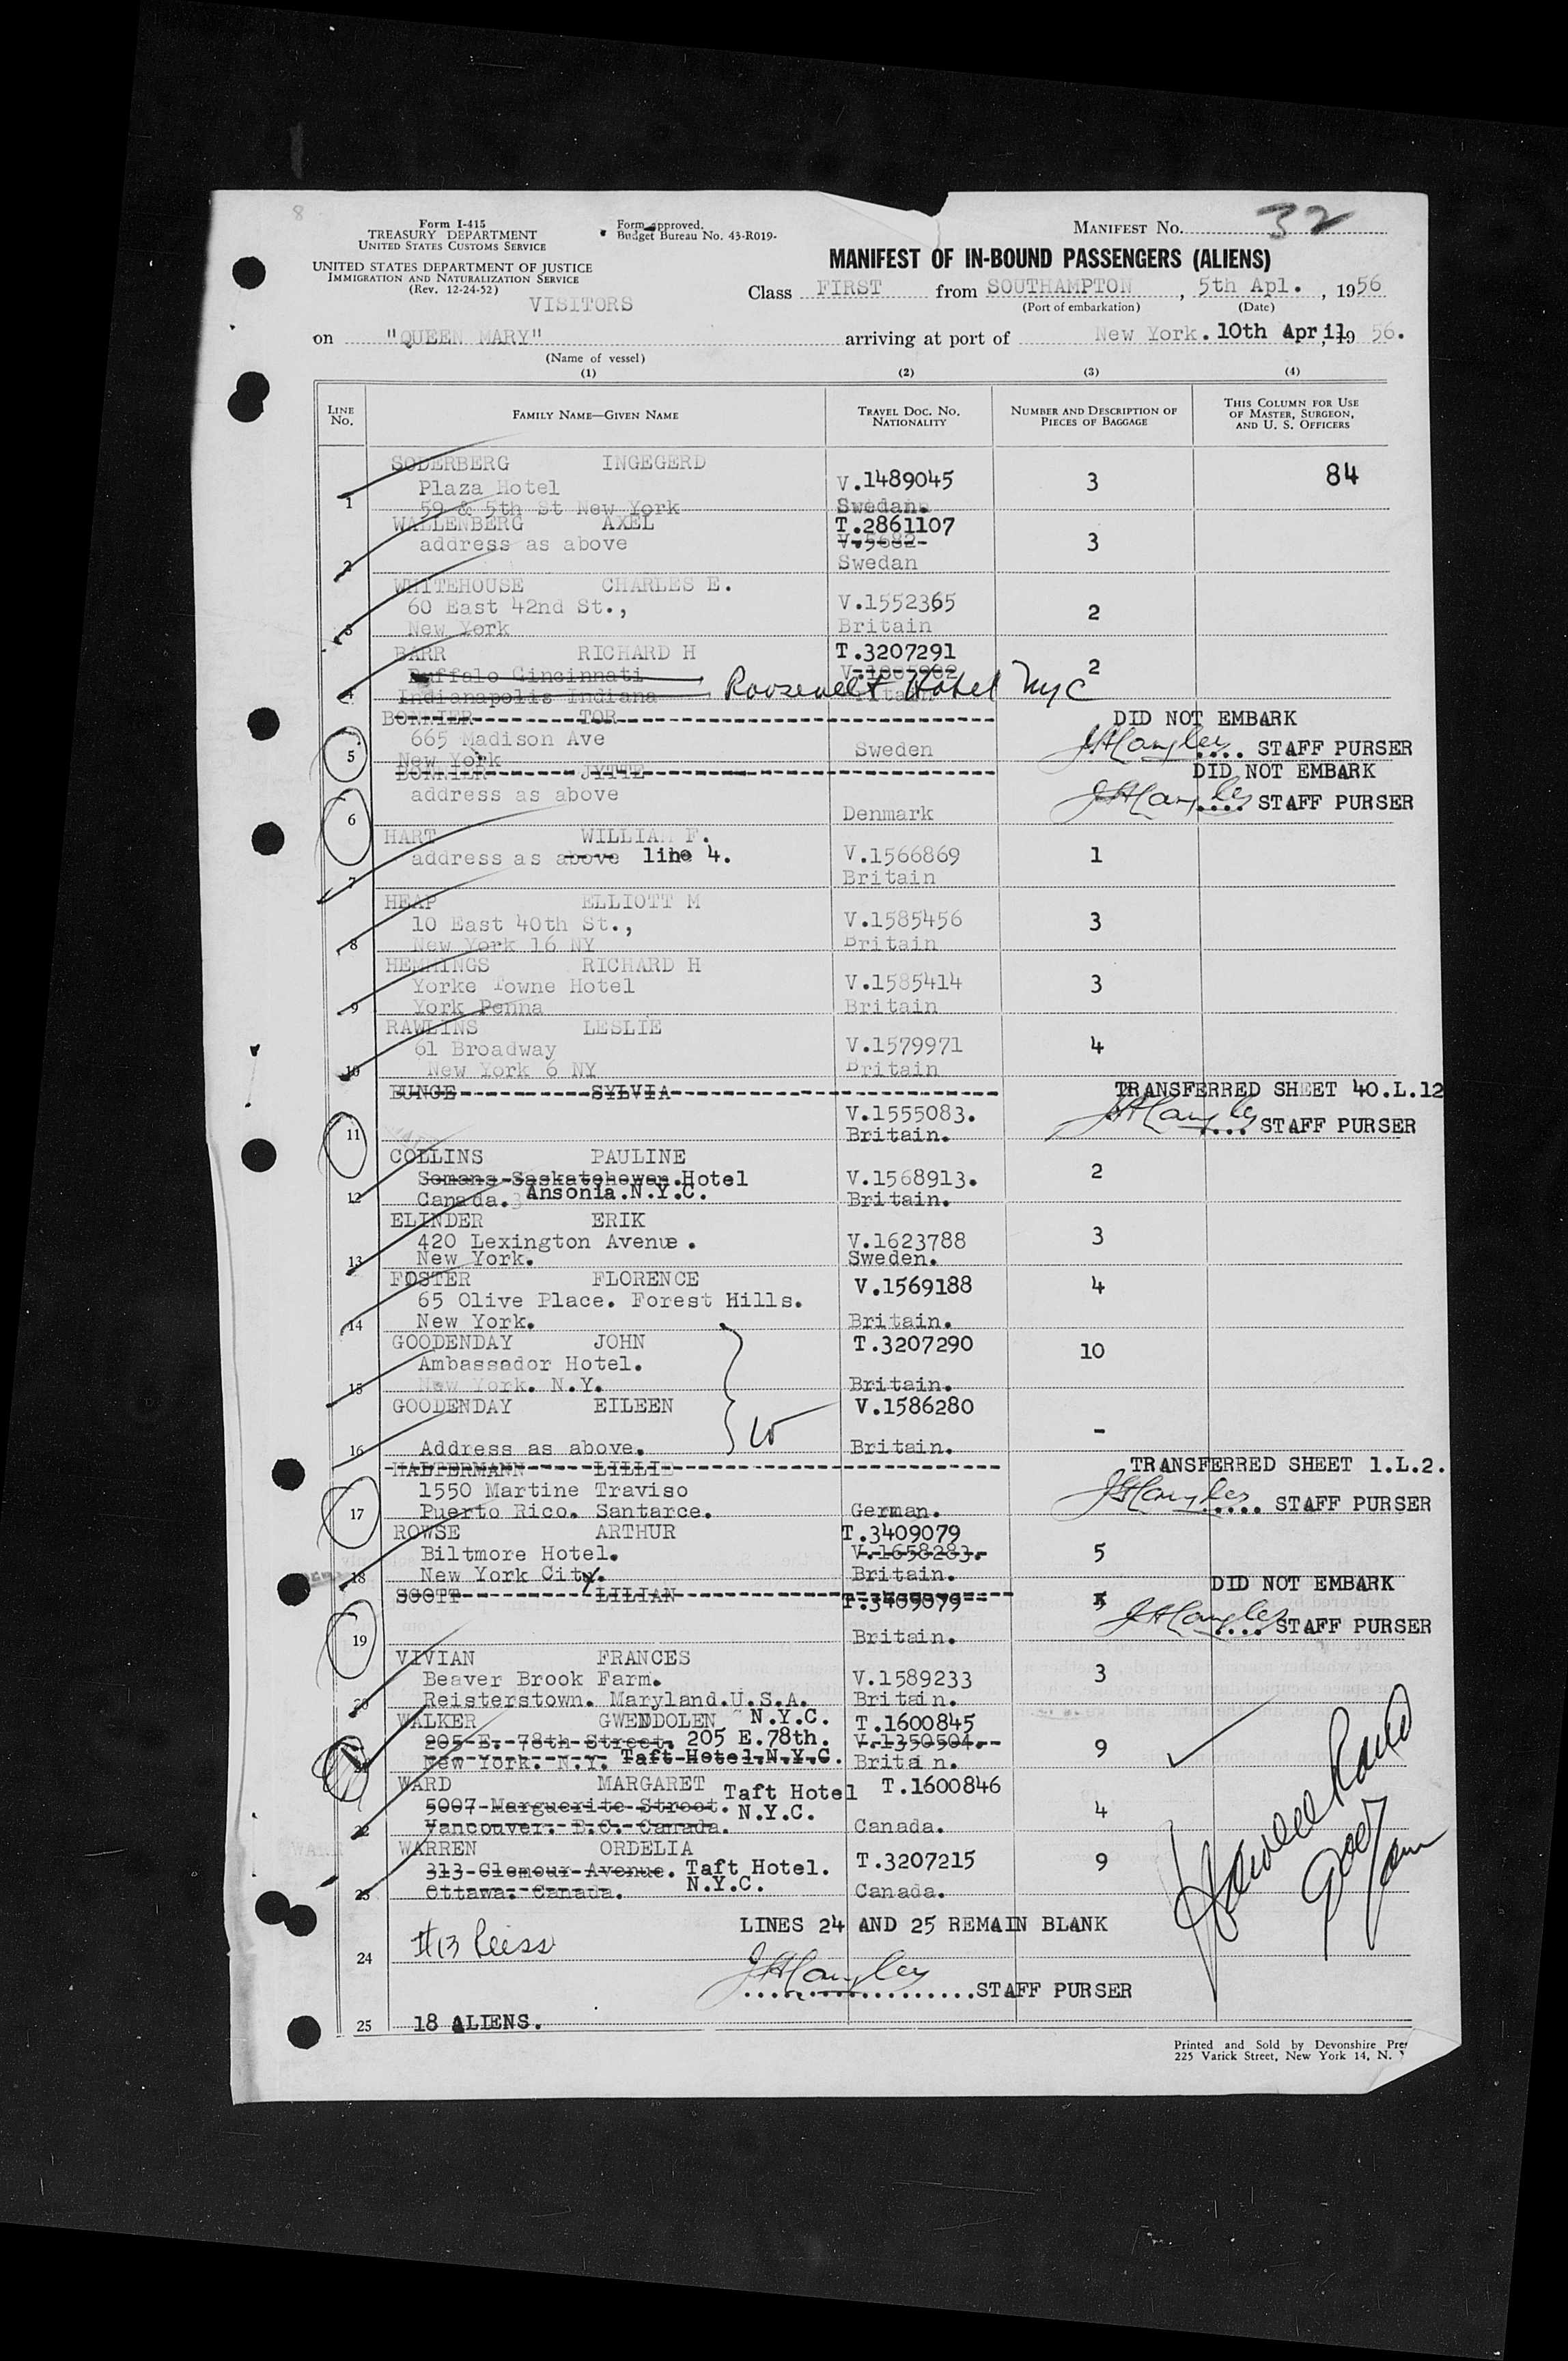 Form I-415
TREASURY DEPARTMENT
UNITED STATES CUSTOMS SERVICE
UNITED STATES DEPARTMENT OF JUSTICE
IMMIGRATION AND NATURALIZATION SERVICE
(Rev. 12-24-52)
VISITORS
Form approved.
Budget Bureau No. 43-R019-
MANIFEST No. 32
MANIFEST OF IN-BOUND PASSENGERS (ALIENS)
Class FIRST from SOUTHAMPTON, 5th Apl., 1956
(Port of embarkation) (Date)
on "QUEEN MARY" arriving at port of New York. 10th April, 19 56.
(Name of vessel)
(1) (2) (3) (4)
LINE No. FAMILY NAME—GIVEN NAME TRAVEL DOC. NO. NATIONALITY NUMBER AND DESCRIPTION OF PIECES OF BAGGAGE THIS COLUMN FOR USE OF MASTER, SURGEON, AND U. S. OFFICERS
SODERBERG INGEGERD
1 Plaza Hotel V.1489045 3 84
59 & 5th St New York Swedan.
WALLENBERG AXEL T.2861107
2 address as above V.5682- 3
Swedan
WHITEHOUSE CHARLES E.
3 60 East 42nd St., V.1552365 2
New York Britain
BARR RICHARD H T.3207291
4 Buffalo Cincinnati 2
Indianapolis Indiana Roosevelt Hotel NYC
BONNIER TOR DID NOT EMBARK
5 665 Madison Ave Sweden JHLangley STAFF PURSER
New York
BONNIER JYTTE DID NOT EMBARK
6 address as above Denmark JHLangley STAFF PURSER
HART WILLIAM F.
7 address as above line 4. V.1566869 1
Britain
HEAP ELLIOTT M
8 10 East 40th St., V.1585456 3
New York 16 NY Britain
HEMMINGS RICHARD H
9 Yorke Towne Hotel V.1585414 3
York Penna Britain
RAWLINS LESLIE
10 61 Broadway V.1579971 4
New York 6 NY Britain
BUNGE SYLVIA TRANSFERRED SHEET 40.L.12
11 V.1555083. JHLangley STAFF PURSER
Britain.
COLLINS PAULINE
12 Semans Saskatchewan. Hotel V.1568913. 2
Canada. Ansonia.N.Y.C. Britain.
ELINDER ERIK
13 420 Lexington Avenue. V.1623788 3
New York. Sweden.
FOSTER FLORENCE V.1569188 4
14 65 Olive Place. Forest Hills.
New York. Britain.
GOODENDAY JOHN T.3207290
15 Ambassador Hotel. 10
New York. N.Y. Britain.
GOODENDAY EILEEN V.1586280
16 Address as above. Britain. -
HALTERMANN LILLIE TRANSFERRED SHEET 1.L.2.
17 1550 Martine Traviso JHLangley STAFF PURSER
Puerto Rico. Santarce. German.
ROWSE ARTHUR T.3409079
18 Biltmore Hotel. V.1658283. 5
New York City. Britain.
SCOTT LILIAN T.3409079 DID NOT EMBARK
19 Britain. JHLangley STAFF PURSER
VIVIAN FRANCES
20 Beaver Brook Farm. V.1589233 3
Reisterstown. Maryland.U.S.A. Britain.
WALKER GWENDDOLEN N.Y.C. T.1600845
205 E. 78th Street. 205 E.78th. V.1350504. 9
New York. N.Y. Taft Hotel.N.Y.C. Britain.
WARD MARGARET Taft Hotel T.1600846
22 5007 Marguerite Street. N.Y.C. 4
Vancouver. B.C. Canada. Canada.
WARREN ORDELIA
23 Avenue. Taft Hotel. T.3207215 9
Ottawa. Canada. N.Y.C. Canada.
LINES 24 AND 25 REMAIN BLANK
24
JHLangley STAFF PURSER
25 18 ALIENS.
Printed and Sold by Devonshire Pre
225 Varick Street, New York 14, N.